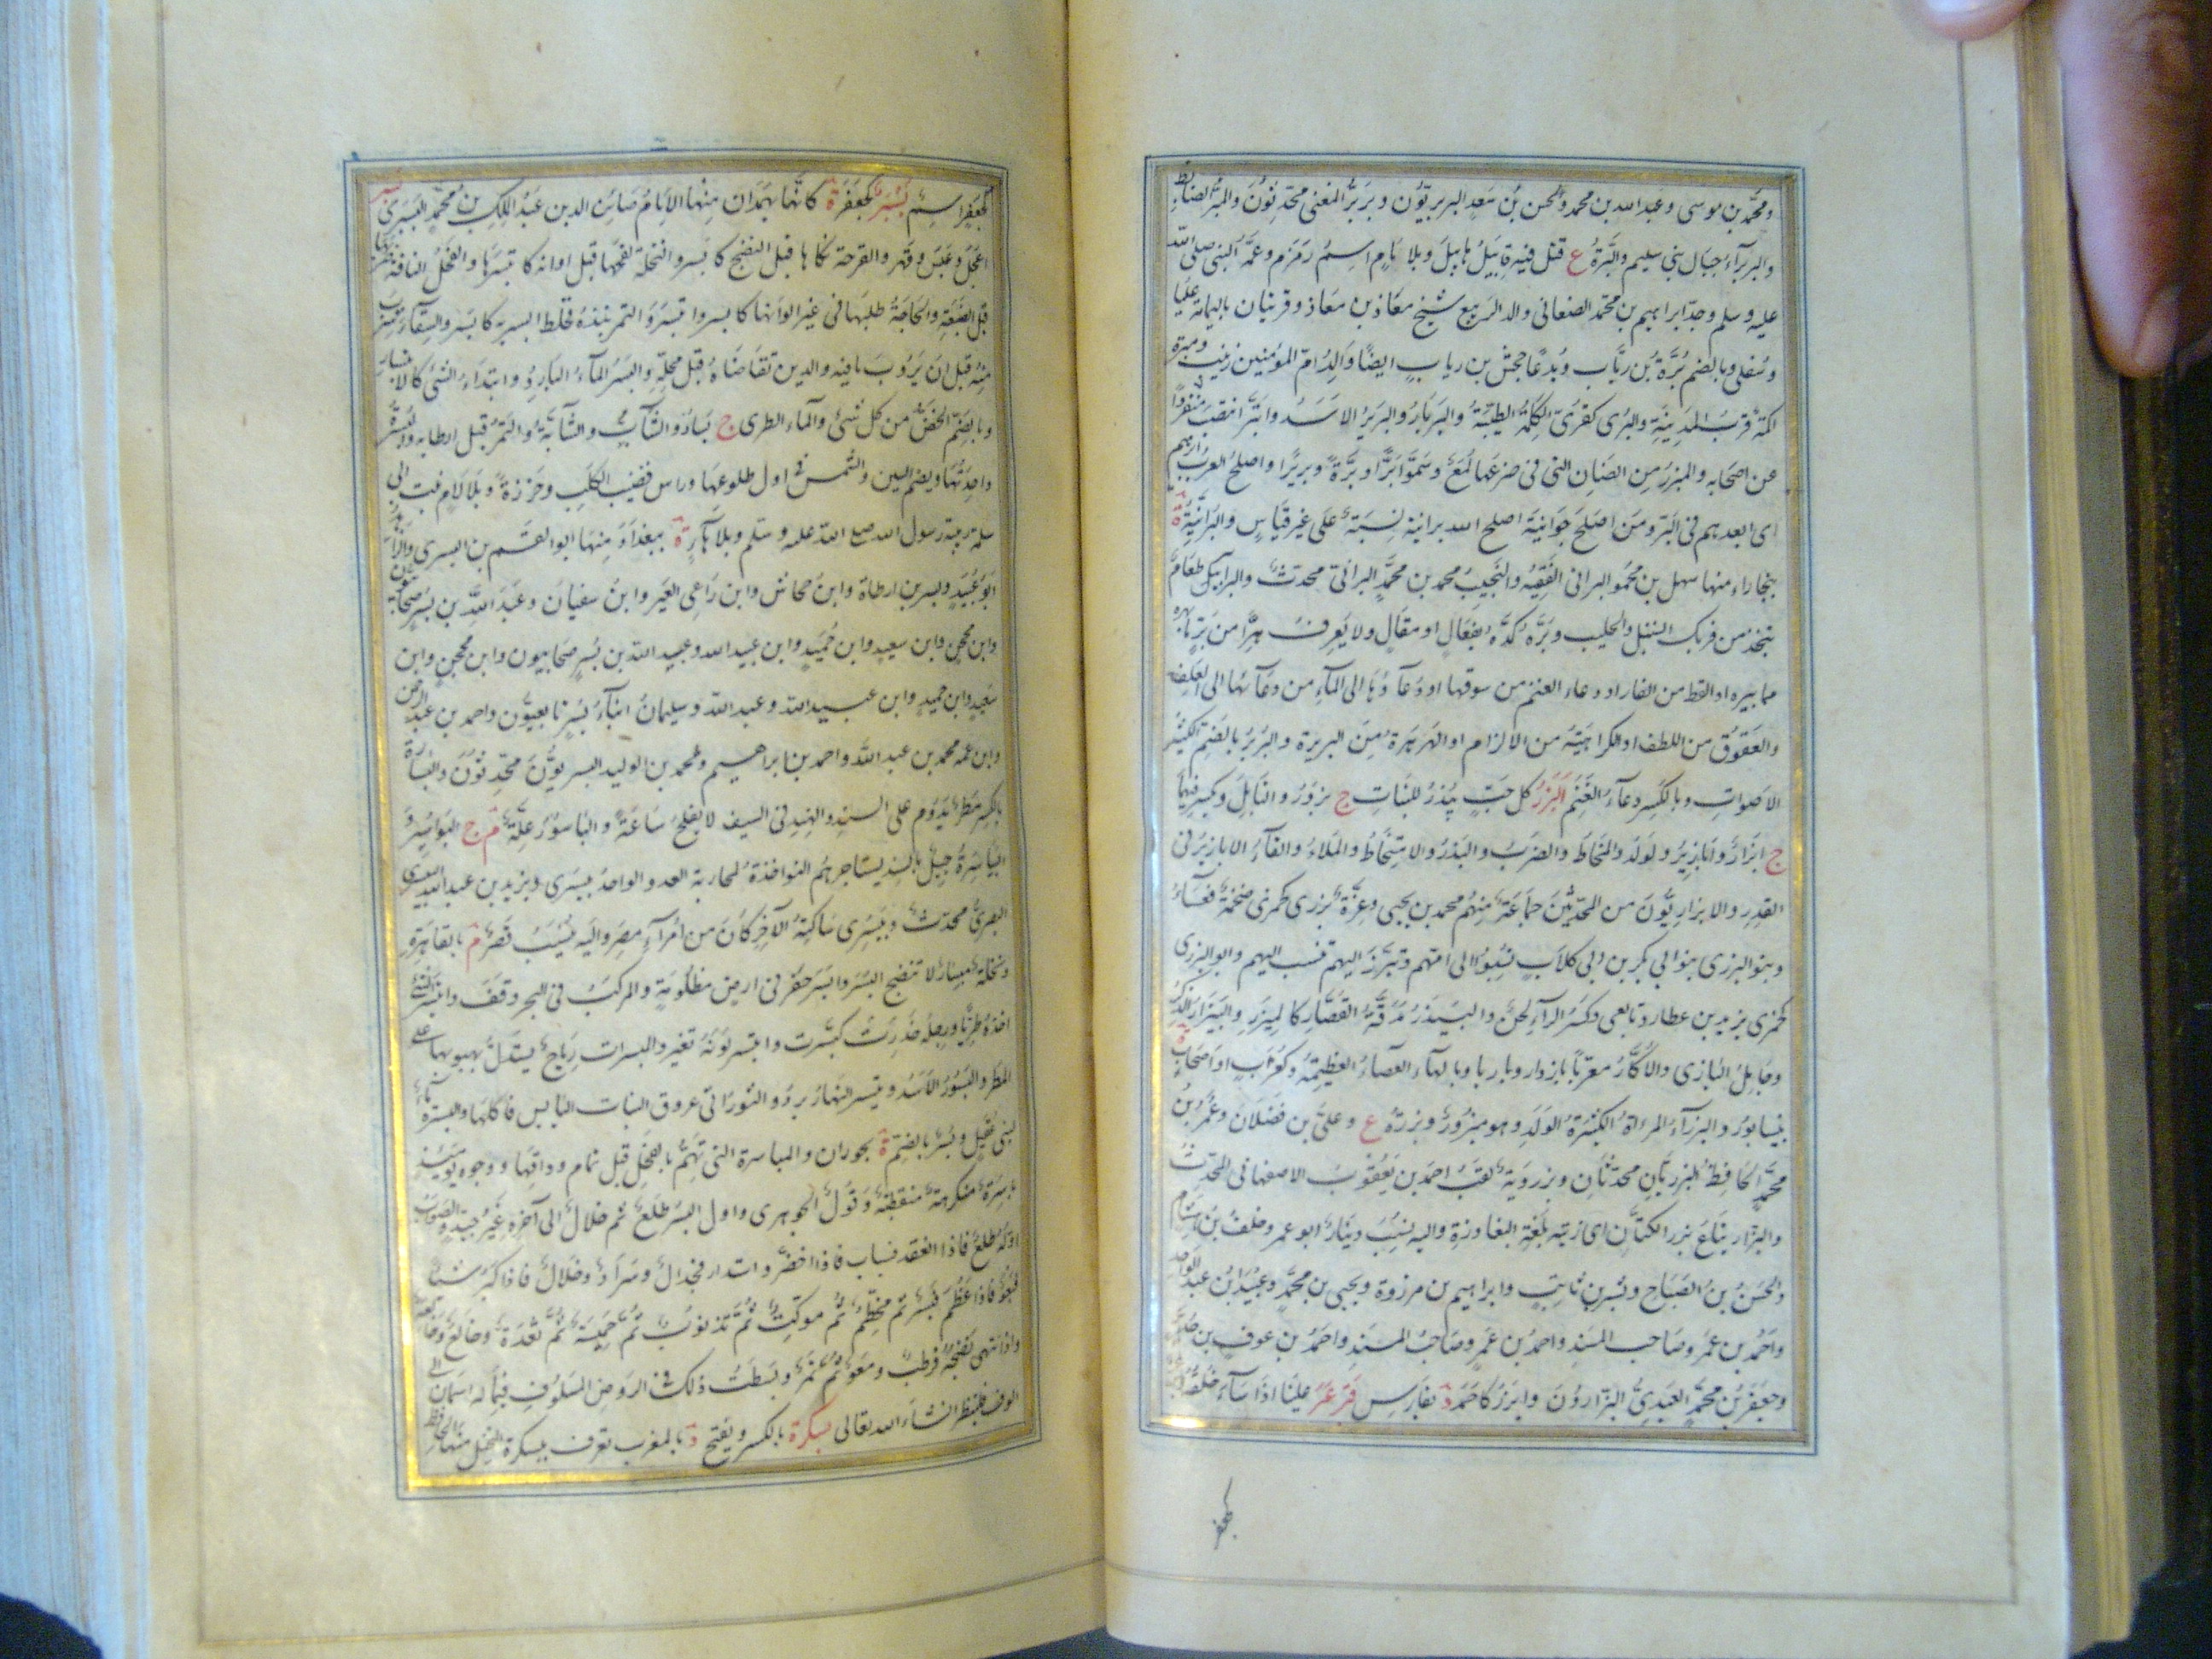 ومحمد بن موسى وعبد الله بن محمد والحسن بن سعد البربريون وبربر المغني محدثون والمبر الضابط
والبربراء جبال بني سليم والبرة ع قتل فيه قابيل هابيل وبلا لام اسم زمزم وعمة النبي صلى الله
عليه وسلم وجد ابراهيم بن محمد الصنعاني والد الربيع شيخ معاذ بن معاذ وقريتان باليمامة عليا
وسفلى وبالضم برة بن رئاب ويدعا جحش بن رياب ايضا والد ام المؤمنين زينب ومبرة
اكمة قرب المدينة والبرى كقرى الكلمة الطيبة والبربار والبربر الاسد وابتر انتصب منفردا
عن اصحابه والمبرر من الضان التي في ضرعها لمع وسموا برا وبرة وبريرا واصلح العرب ابرهم
اى ابعدهم في البر ومن اصلح جوانيه اصلح الله برانيه نسبة على غير قياس والبرانية ة
ببخاراء منها سهل بن محمود البراني الفقيه والنجيب محمد بن محمد البراني محدث والبرابير طعام
يتخذ من فريك السنبل والحليب وبره كمده بفعال او مقال ولا يعرف هرا من بر
مما يبره او القط من الفار او دعاء الغنم من سوقها او دعاؤها الى الماء من دعائها الى العلف
والعقوق من اللطف او الكراهية من الاكرام او الهرهرة من البربرة والبربر بالضم الكثير
الاصوات وبالكسر دعاء الغنم البزر كل حب يبذر للنبات ج بزور والتابل ويكسر فيهما
ج ابزار وابازير والولد والمخاط والضرب والبذر والامتخاط والملاء والقاء الابازير في
القدر والابزاريون من المحدثين جماعة منهم محمد بن يحيى وعزة بزرى كجمزى ضخمة قعساء
وبنو البزرى بنو ابي بكر بن كلاب نسبوا الى امهم وتبزر اليهم تنسب اليهم وابو البزرى
كجمزى يزيد بن عطارد تابعي وكسر الراء لحن والبيذر مدقة القصار كالمبزر والبيزار الذكر
وحامل البازى والاكار معربا بازدار وبازيار وبالهاء العصاء العظيمة وكغراب او اصحاب ة
بنيسابور والبزراء المراة الكثيرة الولد وهو مبزور وبزرة ع وعلي بن فضلان وعمر بن
محمد الحافظ البزريان محدثان وبزرويه لقب احمد بن يعقوب الاصفهاني المحدث
والبزار بياع بزر الكتان اى زيته بلغة البغاددة واليه نسب دينار ابو عمر وخلف بن هشام
والحسن بن الصباح وبشر بن ثابت وابراهيم بن مرزوق ويحيى بن محمد وعبيد بن عبد الواحد
واحمد بن عمرو صاحب المسند واحمد بن عوف بن
وجعفر بن محمد العبدى البزارون وابزر كاحمد ة بفارس علينا اذا ساء خلقه
كجعفر
كجعفر اسم بسبر كجعفرة كانها بهمدان منها الامام صائن الدين عبد الملك بن محمد البسبرى بسر
اعجل وعبس وقهر والقرحة نكاها قبل النضج كابسر والنخلة لقحها قبل اوانه كابتسرها والفحل الناقة ضربها
قبل الضبعة والحاجة طلبها في غير اوانها كابسر وابتسر وتبسر والتمر نبذه فخلط البسر به كابسر والسقاء شرب
منه قبل ان يروب ما فيه والدين تقاضاه قبل محله والبسر الماء البارد وابتداء الشئ كالابتسار
وبالضم الغض من كل شئ والماء الطرى ج بسار والشاب والشابة والتمر قبل ارطابه والبسرة
واحدتها ويضم السين والشمس في اول طلوعها وراس قضيب الكلب وخرزة وبلا لام بنت ابي
سلمة ربيبة رسول الله صلى الله عليه وسلم وبلا هاء ة ببغداد منها ابو القسم بن البسرى والزاهد
ابو عبيد وبسر بن ارطاة وابن جحاش وابن راعي العير وابن سفيان وعبد الله بن بسر صحابيون
وابن محجن وابن سعيد وابن حميد وابن عبيد الله وعبد الله بن بسر صحابيون وابن محجن وابن
سعيد وابن حميد وابن عبيد الله وعبد الله وسليمان ابناء بسر تابعيون واحمد بن عبد الرحمن
وابن عمه محمد بن عبد الله واحمد بن ابراهيم ومحمد بن الوليد البسريون محدثون والبسارة
بالكسر مطر يدوم على السند والهند في الصيف لا يقلع ساعة والباسور علة م ج البواسير و
البياسرة جيل بالسند يستاجرهم النواخذة لمحاربة العدو الواحد بيسرى ويزيد بن عبد الله البيسرى
البصرى محدث وبيسرى ساكنة الآخر كان من امراء مصر واليه ينسب قصر م بالقاهرة
ونخلة مبسار لا تنضج البسر وابسر حفر في ارض مظلومة والمركب في البحر وقف وابتسر الشئ
اخذه طريا ورجله خدرت كبسرت وابتسر لونه تغير والبسرات رياح يستدل بهبوبها على
المطر والبسور الاسد وتبسر النهار برد والثور اتى عروق النبات اليابس فاكلها والبسرة ماء
لبني عقيل وبسر بالضم ة بحوران والمباسرة التي تهم بالفحل قبل تمام وداقها ووجوه يومئذ
باسرة متكرهة متقطبة وقول الجوهرى واول البسر طلع ثم خلال الى آخره غير جيد والصواب
اوله طلع فاذا انعقد فسياب فاذا اخضر واستدار فجدال وسراد وخلال فاذا كبر شيئا
فبغو فاذا عظم فبسر ثم مخطم ثم موكت ثم تذنوب ثم جمسة ثم ثعدة وخالع وخالعة
واذا انتهى نضجه فرطب ومعو ثم تمر وبسطت ذلك في الروض المسلوف فيما له اسمان الى
الوف فلينظر ان شاء الله تعالى بسكرة بالكسر ويفتح د بالمغرب تعرف ببسكرة النخيل منها الحافظ